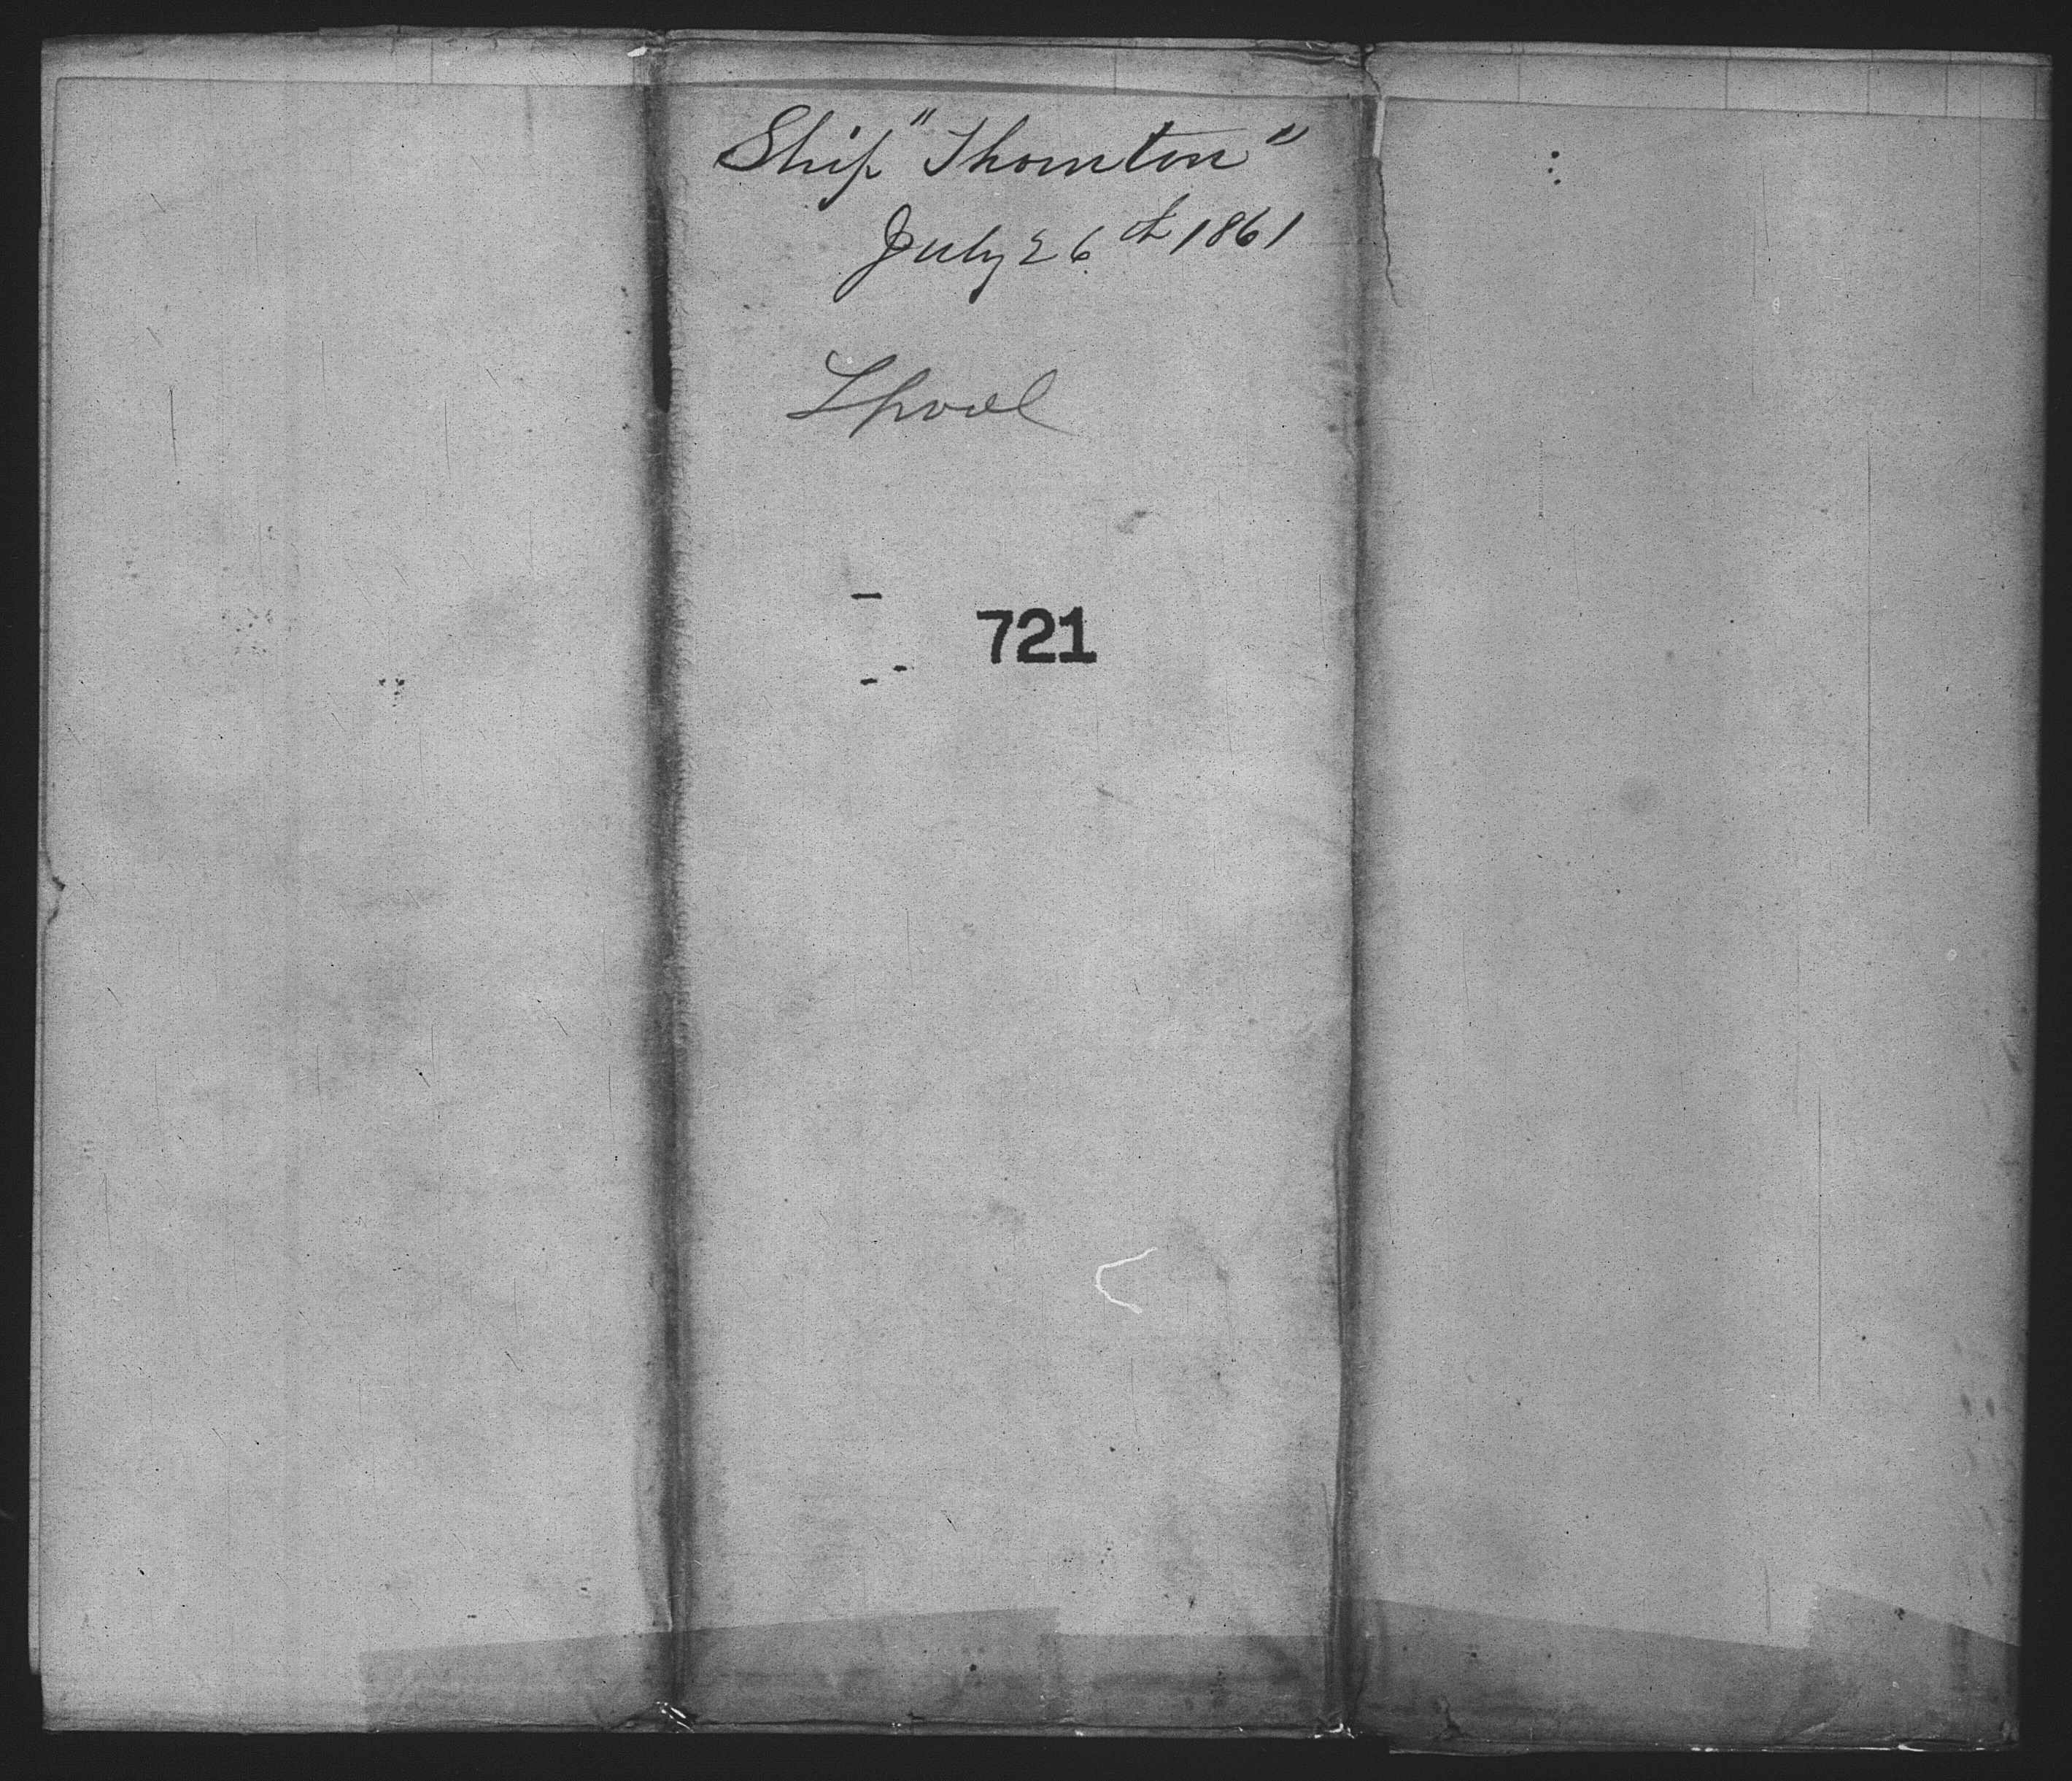 Ship "Thornton"
July 26th 1861
Lpool
721